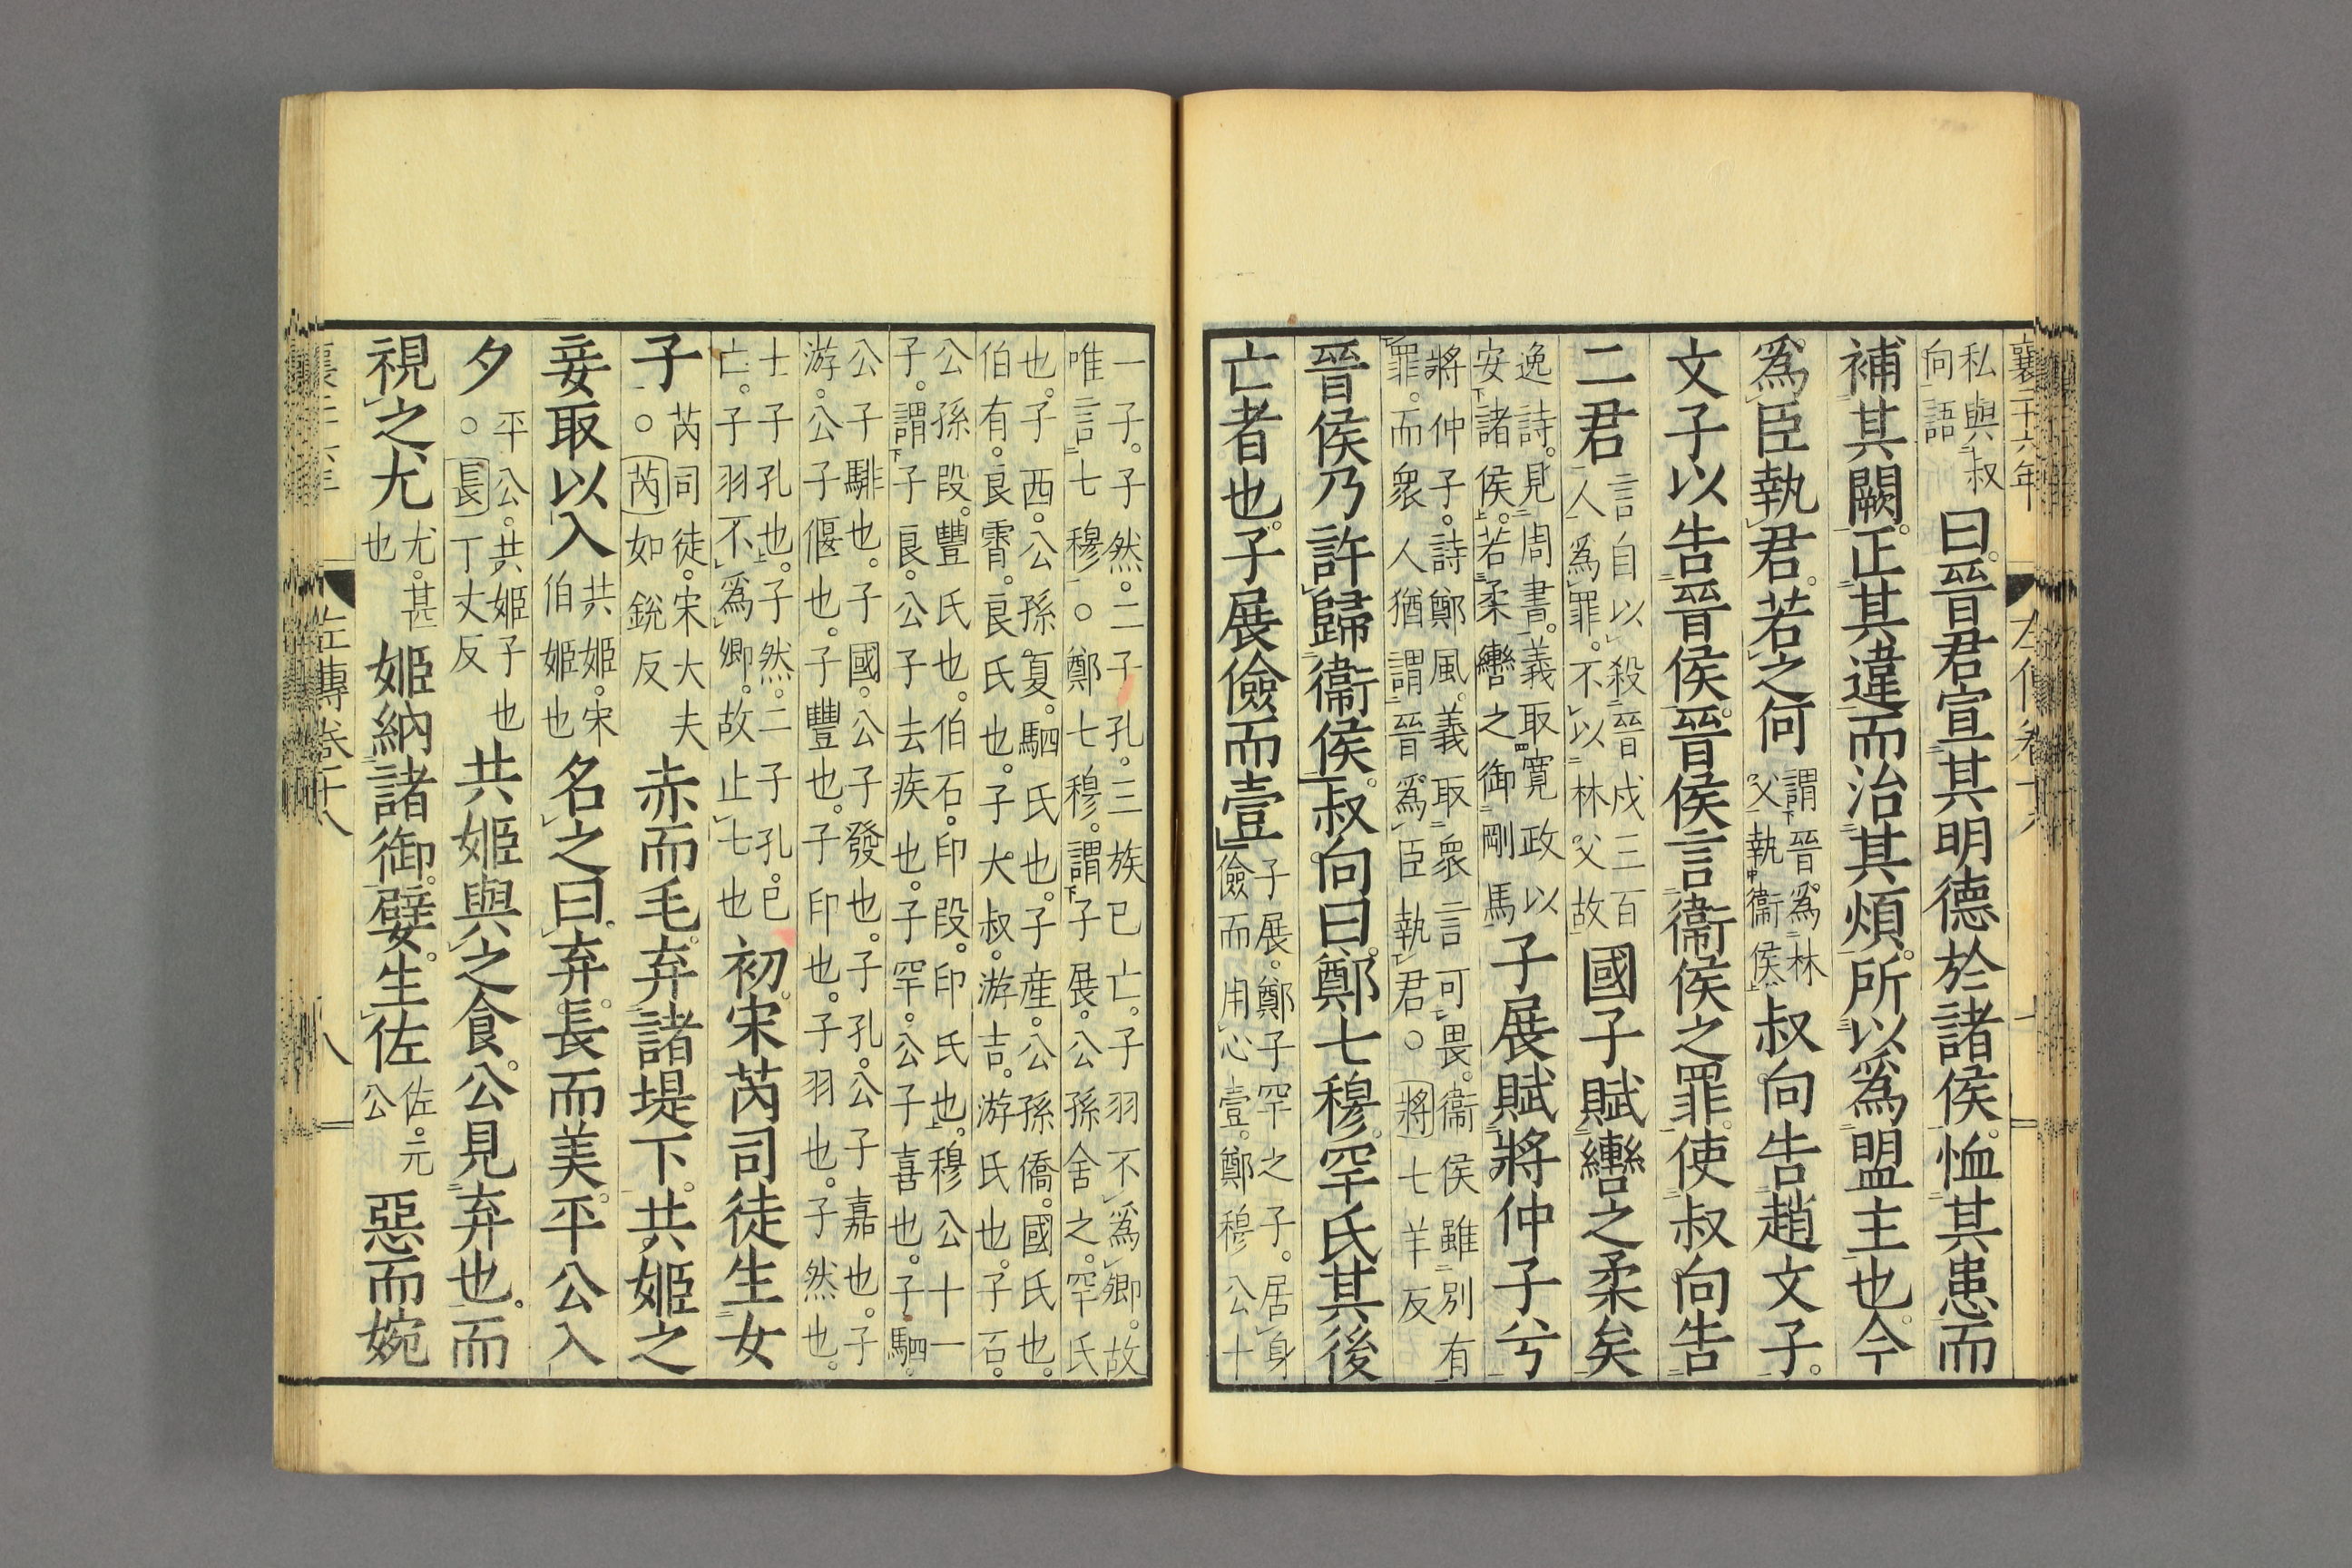 襄二十六年 左傳卷十八
私與叔向語曰。晉君宣其明德於諸侯。恤其患而
補其闕。正其違而治其煩。所以爲盟主也。今
爲臣執君。若之何謂晉爲林父執衞侯叔向告趙文子。
文子以告晉侯。晉侯言衞侯之罪。使叔向告
二君言自以殺晉戍三百人爲罪。不以林父故國子賦轡之柔矣
逸詩。見周書。義取寬政以安諸侯。若柔轡之御剛馬子展賦將仲子兮
將仲子。詩鄭風。義取衆言可畏。衞侯雖別有罪。而衆人猶謂晉爲臣執君。○將七羊反
晉侯乃許歸衞侯。叔向曰。鄭七穆。罕氏其後
亡者也。子展儉而壹子展。鄭子罕之子。居身儉而用心壹。鄭穆公十
一子。子然。二子孔。三族已亡。子羽不爲卿。故唯言七穆○鄭七穆。謂子展。公孫舍之。罕氏
也。子西。公孫夏。駟氏也。子産。公孫僑。國氏也。伯有。良霄。良氏也。子大叔。游吉。游氏也。子石。
公孫段。豐氏也。伯石。印段。印氏也。穆公十一子。謂子良。公子去疾也。子罕。公子喜也。子駟。
公子騑也。子國。公子發也。子孔。公子嘉也。子游。公子偃也。子豐也。子印也。子羽也。子然也。
士子孔也。子然。二子孔。已亡。子羽不爲卿。故止七也初。宋芮司徒生女
子芮司徒。宋大夫○芮如銳反赤而毛。弃諸堤下。共姬之
妾取以入共姬。宋伯姬也名之曰。弃。長而美。平公入
夕平公。共姬子也○長丁丈反共姬與之食。公見弃也。而
視之尤尤。甚也姬納諸御。嬖。生佐佐。元公惡而婉
襄二十六年 左傳卷十八 八